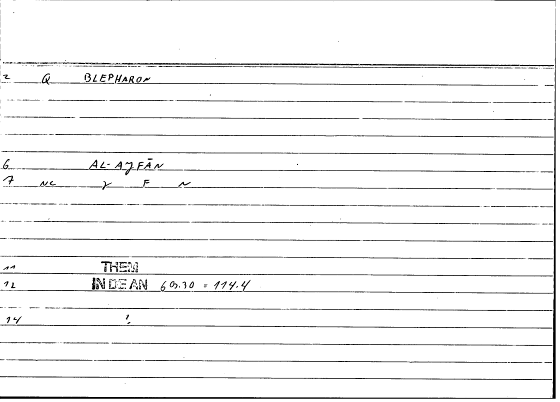 2 Q BLEPHARON
6 AL-AJFĀN
7 NC J F N
11 THEM
12 IN DE AN 603.30 = 114.4
14 !